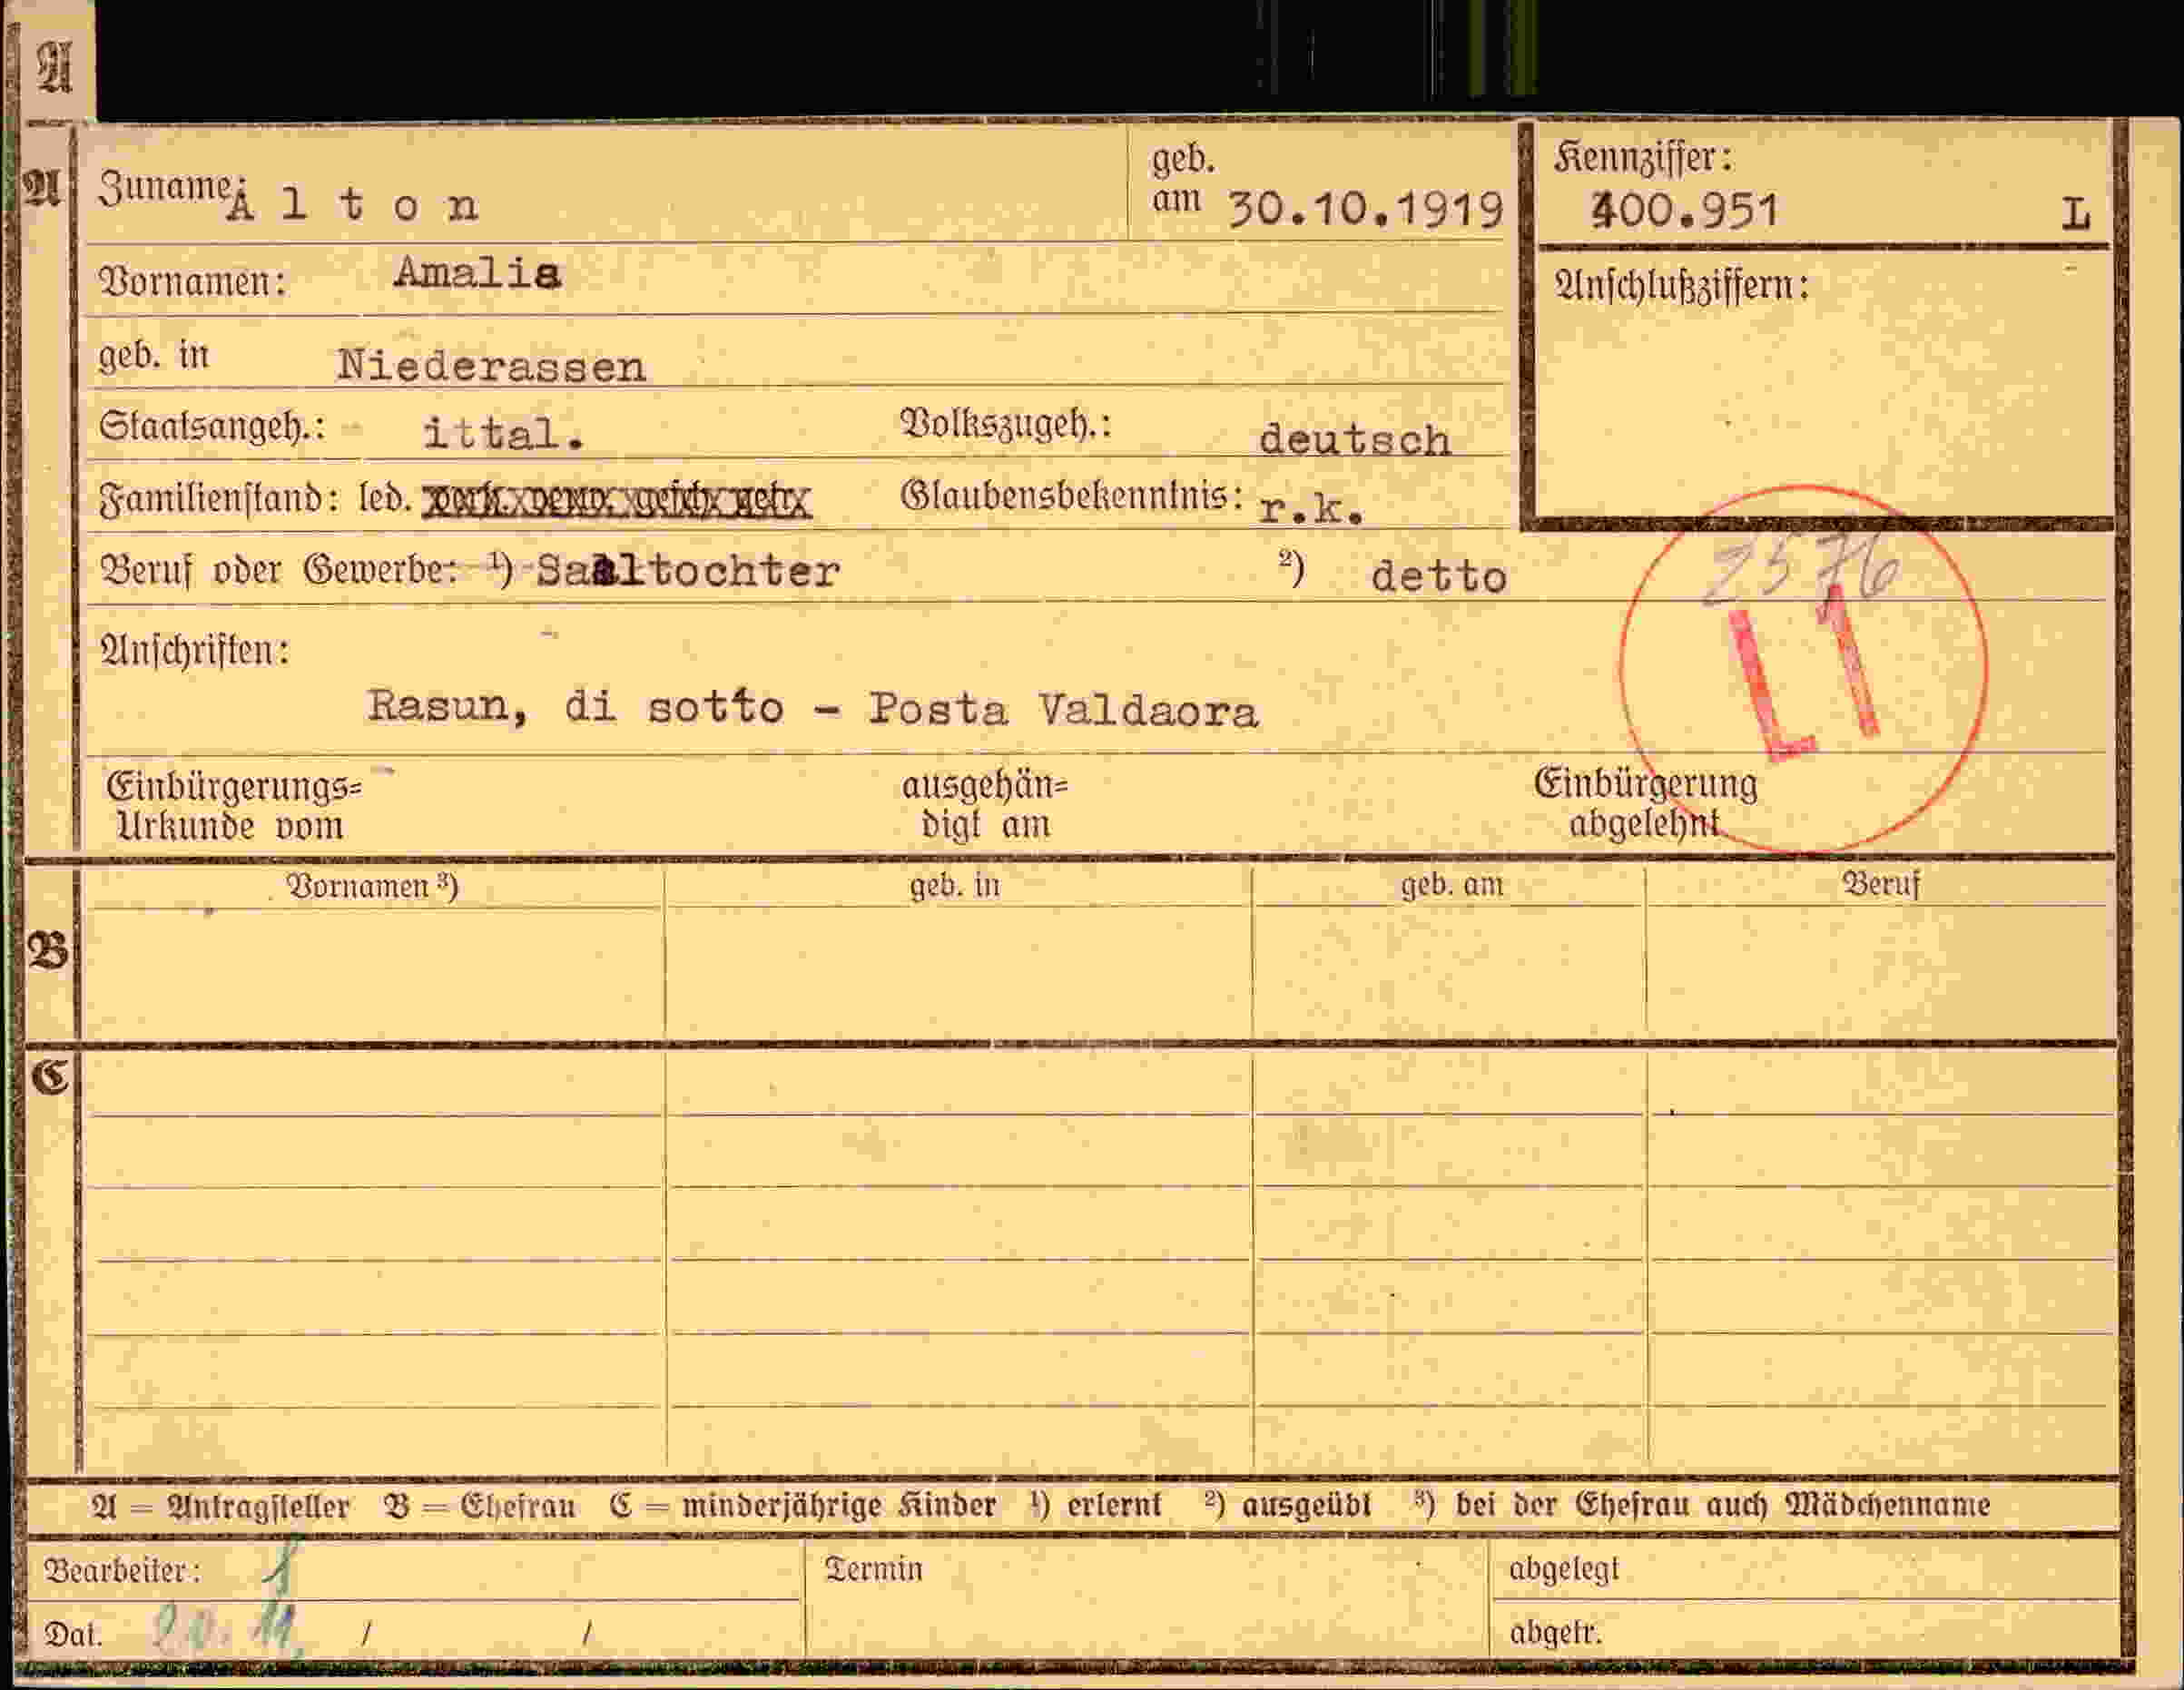 A
A
Zuname: Alton
geb. am 30.10.1919
Kennziffer:
400.951 L
Vornamen: Amalia
Anschlußziffern:
geb. in Niederassen
Staatsangeh.: ittal. Volkszugeh.: deutsch
Familienstand: led. verh. verw. gesch. getr. Glaubensbekenntnis: r.k.
2576
Beruf oder Gewerbe: 1) Saaltochter 2) detto
L1
Anschriften:
Rasun, di sotto - Posta Valdaora
Einbürgerungs= ausgehän= Einbürgerung
Urkunde vom digt am abgelehnt
Vornamen 3) geb. in geb. am Beruf
B
C
A = Antragsteller B = Ehefrau C = minderjährige Kinder 1) erlernt 2) ausgeübt 3) bei der Ehefrau auch Mädchenname
Bearbeiter: Termin abgelegt
Dat. / / abgetr.